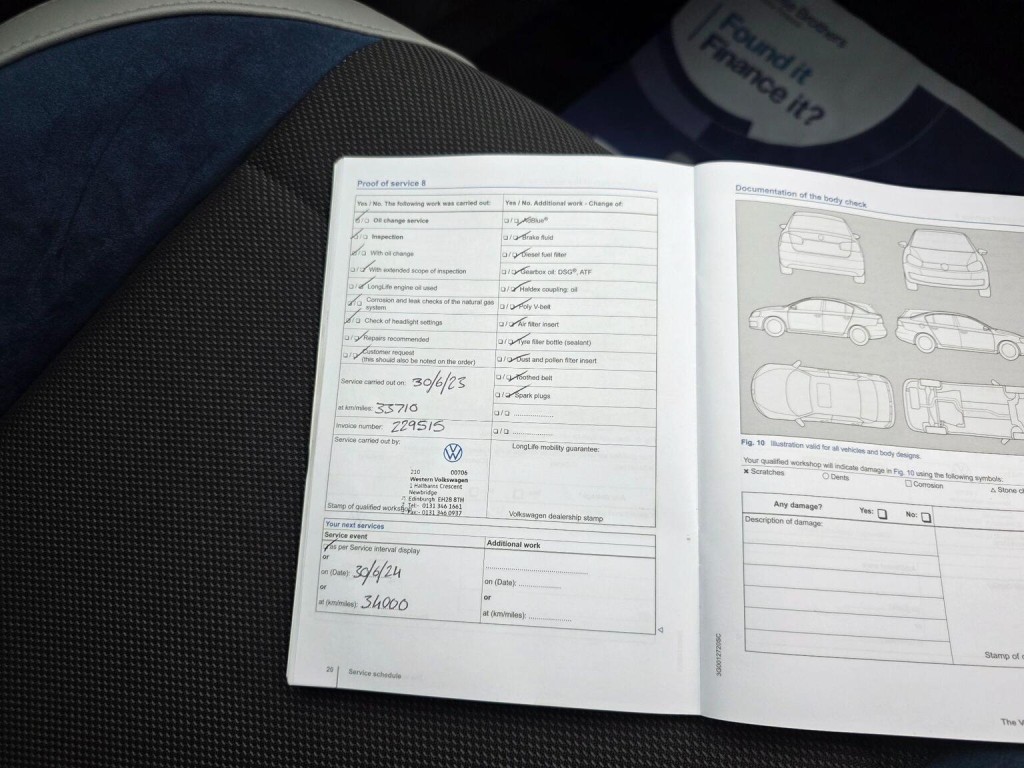 Brothers
Found it
Finance it?
Proof of service 8
Yes / No. The following work was carried out:
Oil change service
Inspection
With oil change
With extended scope of inspection
LongLife engine oil used
Corrosion and leak checks of the natural gas
system
Check of headlight settings
Repairs recommended
Customer request
(this should also be noted on the order)
Service carried out on: 30/6/23
at km/miles: 33710
Invoice number: 229515
Service carried out by:
210 00706
Western Volkswagen
1 Hallbarns Crescent
Newbridge
Edinburgh EH28 8TH
Tel:- 0131 346 1661
Fax:- 0131 346 0937
Stamp of qualified
Yes / No. Additional work - Change of:
AdBlue®
Brake fluid
Diesel fuel filter
Gearbox oil: DSG®, ATF
Haldex coupling: oil
Poly V-belt
Air filter insert
Tyre filler bottle (sealant)
Dust and pollen filter insert
Toothed belt
Spark plugs
LongLife mobility guarantee:
Volkswagen dealership stamp
Your next services
Service event
as per Service interval display
or
on (Date): 30/6/24
or
at (km/miles): 34000
Additional work
on (Date):
or
at (km/miles):
20 Service schedule
Documentation of the body check
Fig. 10 Illustration valid for all vehicles and body designs.
Your qualified workshop will indicate damage in Fig. 10 using the following symbols:
× Scratches ○ Dents □ Corrosion △ Stone
Any damage? Yes: □ No: □
Description of damage:
Stamp of
The
3G0012720SC